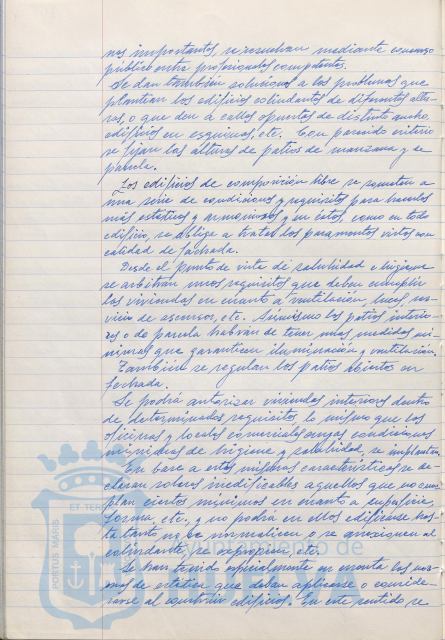 nos importantes, se resuelvan mediante concurso
público entre profesionales competentes.
Se dan también soluciones a los problemas que
plantean los edificios colindantes de diferentes altu-
ras, o que den a calles opuestas de distinto ancho,
edificios en esquinas, etc. Con parecido criterio
se fijan las alturas de patios de manzana y de
parcela.
Los edificios de composición libre se someten a
una serie de condiciones y requisitos para hacerlos
más estéticos y armoniosos y en éstos, como en todo
edificio, se obliga a tratar los paramentos vistos con
calidad de fachada.
Desde el punto de vista de salubridad e higiene
se arbitran unos requisitos que deben cumplir
las viviendas en cuanto a ventilación, luces, ser-
vicio de ascensor, etc. Asimismo los patios interio-
res o de parcela habrán de tener unas medidas mí-
nimas que garanticen iluminación y ventilación.
También se regulan los patios abiertos en
fachada.
Se podrá autorizar viviendas interiores dentro
de determinados requisitos lo mismo que las
oficinas y locales comerciales cuyas condiciones
mínimas de higiene y salubridad, se implantan.
En base a estas mismas características se de-
claran solares inedificables aquellos que no cum-
plan ciertos mínimos en cuanto a superficie,
forma, etc., y no podrá en ellos edificarse has-
ta tanto no se normalicen o se anexionen al
colindante, se expropien, etc.
Se han tenido especialmente en cuenta las nor-
mas de estética que deban aplicarse o conside-
rarse al construir edificios. En este sentido se
PORTUS MARIS
ET TERRÆ
Ayuntamiento de
HUELVA